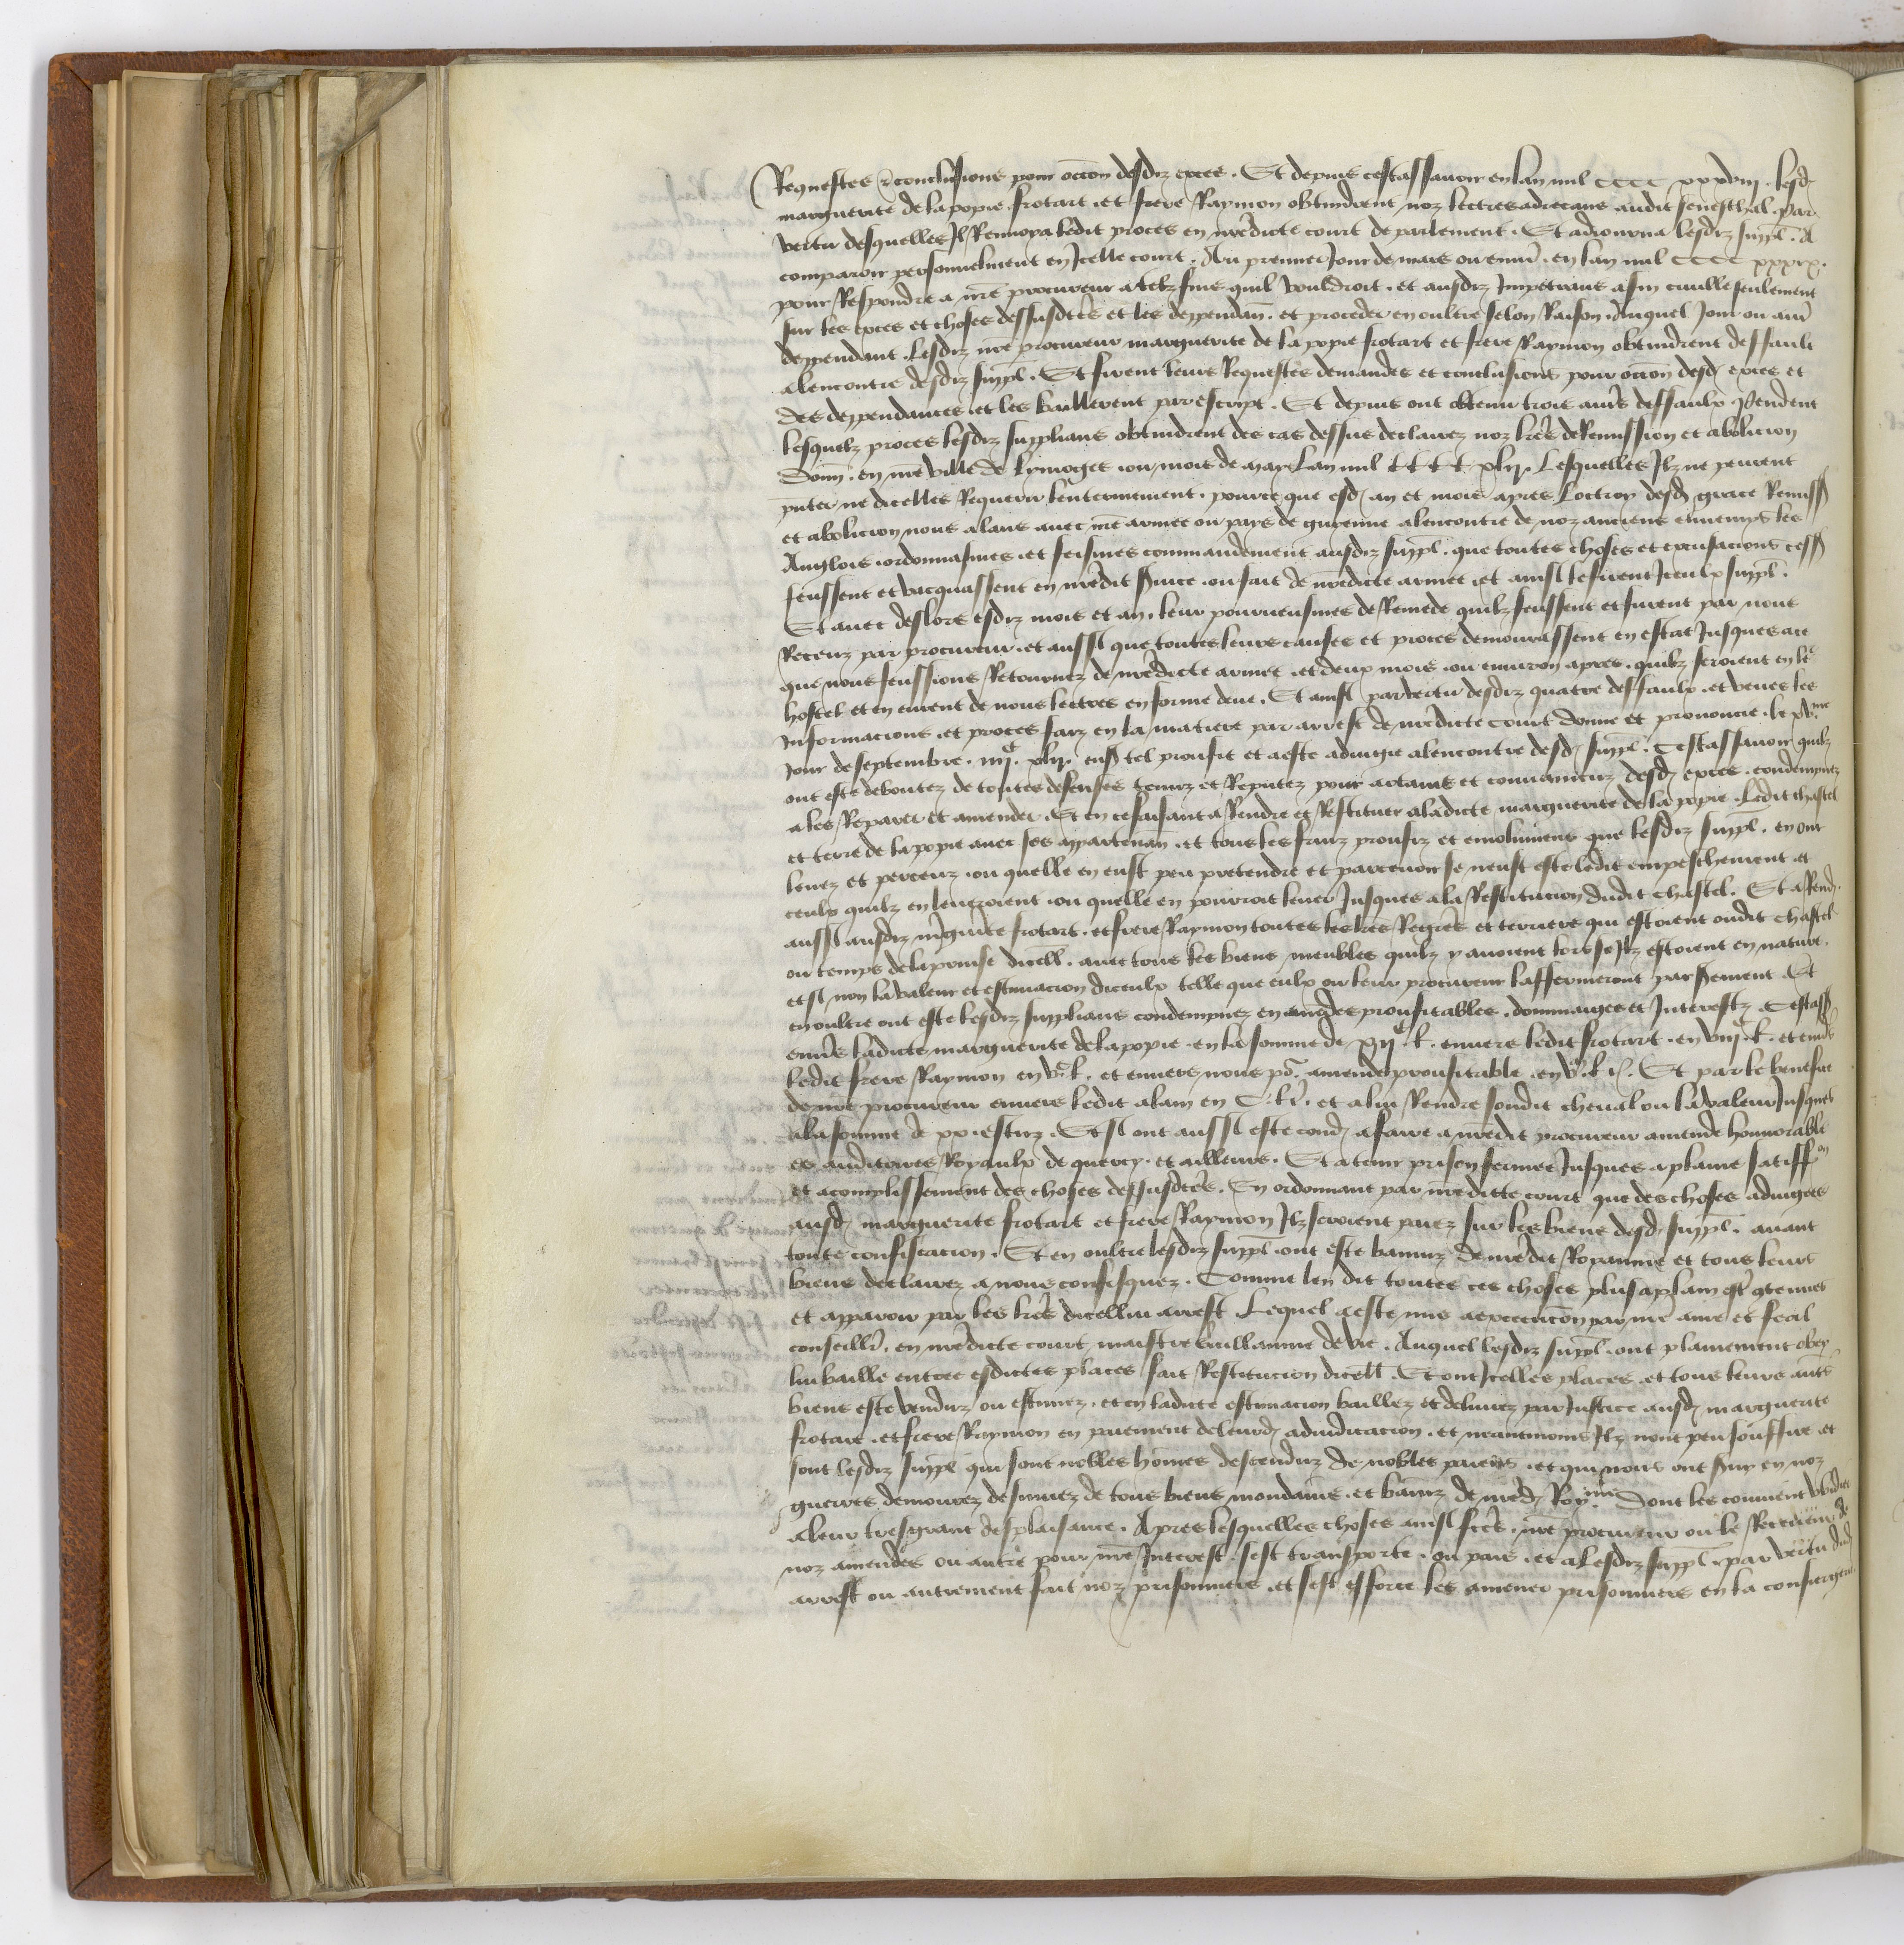 Requestes et conclusions pour occon desdiz exces. Et depuis cestassavoir en lan mil CCCC xxxviij. lesd
marguerite de la popie frotart. et frere Raymon obtindrent noz lectres adrecans audit seneschal. Par
vertu desquelles Il Renvoya ledit proces en nredicte court de parlement. Et adiourna lesdiz suppl. A
comparoir personnelment en Icelle court. Au premier Jour de mars ou envir. en lan mil CCCC xxxix.
pour Respondre a nre procureur a telz fins quil vouldroit. et ausdiz Impetrans afin civille seulement
sur les exces et choses dessusdctes et les deppendan. et proceder en oultre selon Raison. Auquel Jour ou autre
deppendant. Lesdiz nre procureur marguerite de la popie frotart et frere Raymon obtindrent deffault
alencontre desdiz suppl. Et firent leurs Requestes demandes et conclusions pour occon desd exces et
des deppendances. et les baillerent par escript. Et depuis ont obtenu trois autres deffaulx Pendent
lesquelz proces lesdiz supplians obtindrent des cas dessus declairez noz lres de Remission et abolicion
Donn. en nre ville de lymoges. ou mois de may Lan mil CCCC. xlij. Lesquelles Ilz ne peurent
pnter ne dicelles Requerir lenterinement. pource que esd an et mois apres loctroy desd grace Remiss
et abolicion nous alans avec nre armee ou pays de guyenne alencontre de noz anciens ennemys les
Anglois. ordonnasmes. et feismes commandement ausdiz suppl. que toutes choses et excusacions cess
feussent et vacquassent en nredit svice. ou fait de nredicte armee. et ainsi le firent Iceulx suppl.
Et avec deslors esdiz mois et an. leur pourveusmes de Remede quilz feussent et furent par nous
Receuz par procureur. et aussi que toutes leurs causes et proces demourassent en estat Jusques ace
que nous feussions Retournez de nredicte armee. et deux mois. ou environ apres. quilz seroient en le
hostel et en eurent de nous lectres en forme deue. Et ainsi par vertu desdiz quatre deffaulx. et veues les
Informacions. et proces faiz en la matiere par arrest de nredicte court donne et prononcie. le xv.me
Jour de septembre. iiijC. xlij. tel proufit et a este adiugie alencontre desd suppl. Cestassavoir quilz
ont este deboutez de toutes defenses tenuz et Reputez pour actains et convaincuz desd exces. condempnez
a les Reparer et amender. Et en ce faisant a Rendre et Restituer a ladicte marguerite de la popie. Ledit chastel
et terre de la popie avec ses appartenan. et tous les fruiz proufiz et emolumens que lesdiz suppl. en ont
levez et perceuz. ou quelle en eust peu pretendre et parcevoir se neust este ledit empeschement. et
ceulx quilz en leveroient. ou quelle en pourroit lever Jusques a la Restitucion dudit chastel. Et a Rend.
aussi ausdiz m'guite frotart. et frere Raymon toutes les lres Regres et terriers qui estoient oudit chastel
ou temps de la prinse dicell. avec tous les biens meubles quilz y avoient lors se Ilz estoient en nature.
et si non la valeur et estimacion diceulx telle que eulx ou leur procureur laffermeront par serement. Et
en oultre ont este lesdiz supplians condempnez en amendes proufitables. dommaiges et Interestz. Cestass
envers ladicte marguerite de la popie en la somme de xijC. l. envers ledit frotart. en viijC. l. et env's
ledit frere Raymon en vC. l. et envers nous po. amende proufitable. en vC. l t. Et par le benefice
de nre procureur envers ledit alain en C. lt. et a lui Rendre sondit cheval ou la valeur Jusques
a la somme de xx. escuz. Et si ont aussi este cond. a faire a nredit procureur amende honnorable
es auditoires Royaulx de quercy. et ailleurs. Et a tenir prison fermee Jusques a plaine satiffon
et acomplissement des choses dessusdctes. En ordonnant par nredicte court que des choses adiugees
ausd. marguerite frotart et frere Raymon Ilz seroient paiez sur les biens desd. suppl. avant
toute confiscacion. Et en oultre lesdiz suppl. ont este banniz de nredit Royaume et tous leurs
biens declairez a nous confisquez. Comme len dit toutes ces choses plus a plain estre contenues
et apparoir par les lres dicellui arrest Lequel a este mis a execucion par nre ame et feal
conseiller. en nredicte court maistre Guillaume de vic. Auquel lesdiz suppl. ont plainement obey
lui baille entree esdictes places fait Restitucion dicell. Et ont Icelles places. et tous leurs autres
biens este venduz ou estimez. et en ladicte estimacion baillez et delivrez par Justice ausd marguerite
frotart. et frere Raymon en paiement de leurd. adiudicacion. et neantmoins Ilz nont peu souffire et
sont lesdiz suppl. qui sont nobles homes descenduz de nobles parens. et qui nous ont svy en noz
guerres demourez desnuez de tous biens mondains. et banniz de nred. Roy.me Dont les convient vuider
a leur tres grant desplaisance. Apres lesquelles choses ainsi fctes. nre procureur ou le Receveur de
noz amendes ou autre pour nre Interest sest transporte. ou pais. et a lesdiz suppl. par vertu dud
arrest ou autrement fait noz prisonniers. et sest efforce les amener prisonniers en la consiergerie